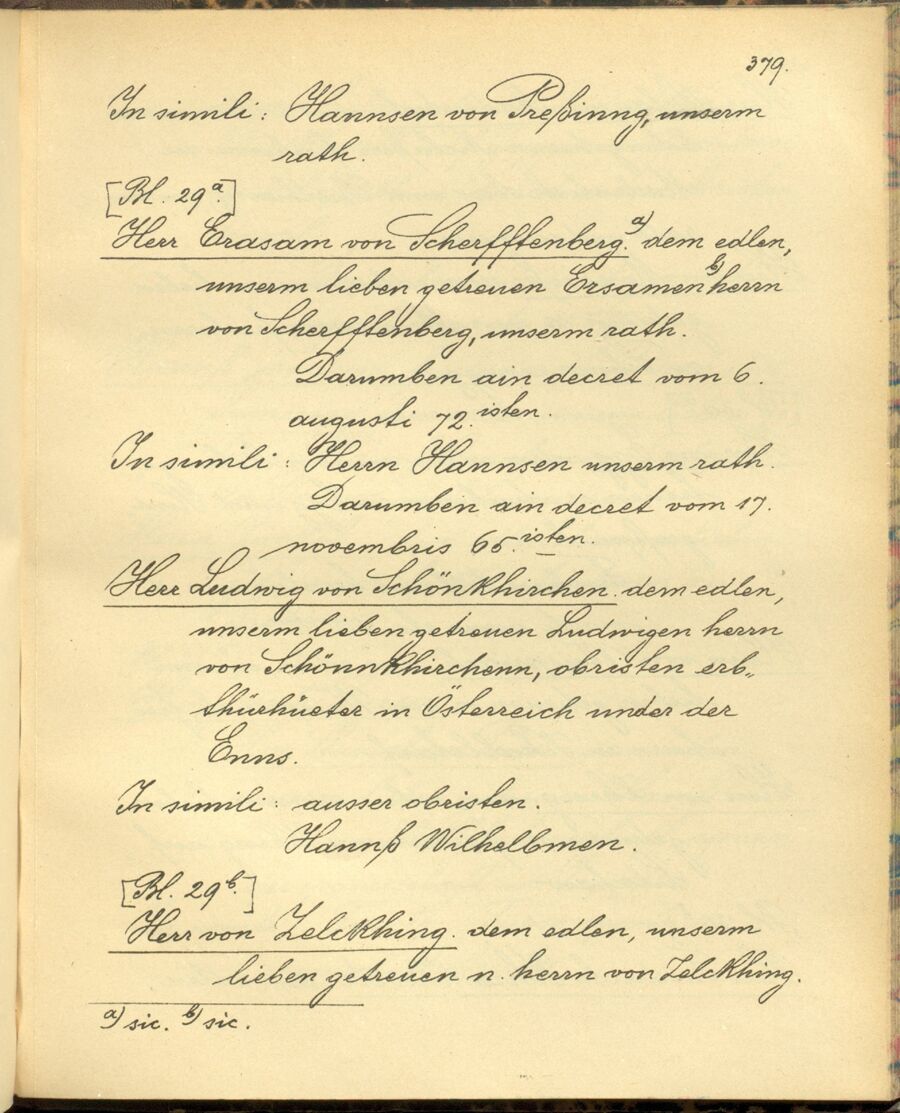 379.
In simili: Hannsen von Preßinng, unserm
rath.
[Bl. 29a.]
Herr Erasam von Scherfftenberg.a) dem edlen,
unserm lieben getreuen Ersamenb) herrn
von Scherfftenberg, unserm rath.
Darumben ain decret vom 6.
augusti 72.isten.
In simili: Herrn Hannsen unserm rath.
Darumben ain decret vom 17.
novembris 65.isten.
Herr Ludwig von Schönkhirchen. dem edlen,
unserm lieben getreuen Ludwigen herrn
von Schönnkhirchenn, obristen erb„
thürhüeter in Österreich under der
Enns.
In simili: ausser obristen.
Hannß Wilhelbmen.
[Bl. 29b.]
Herr von Zelckhing. dem edlen, unserm
lieben getreuen n. herrn von Zelckhing.
a) sic. b) sic.